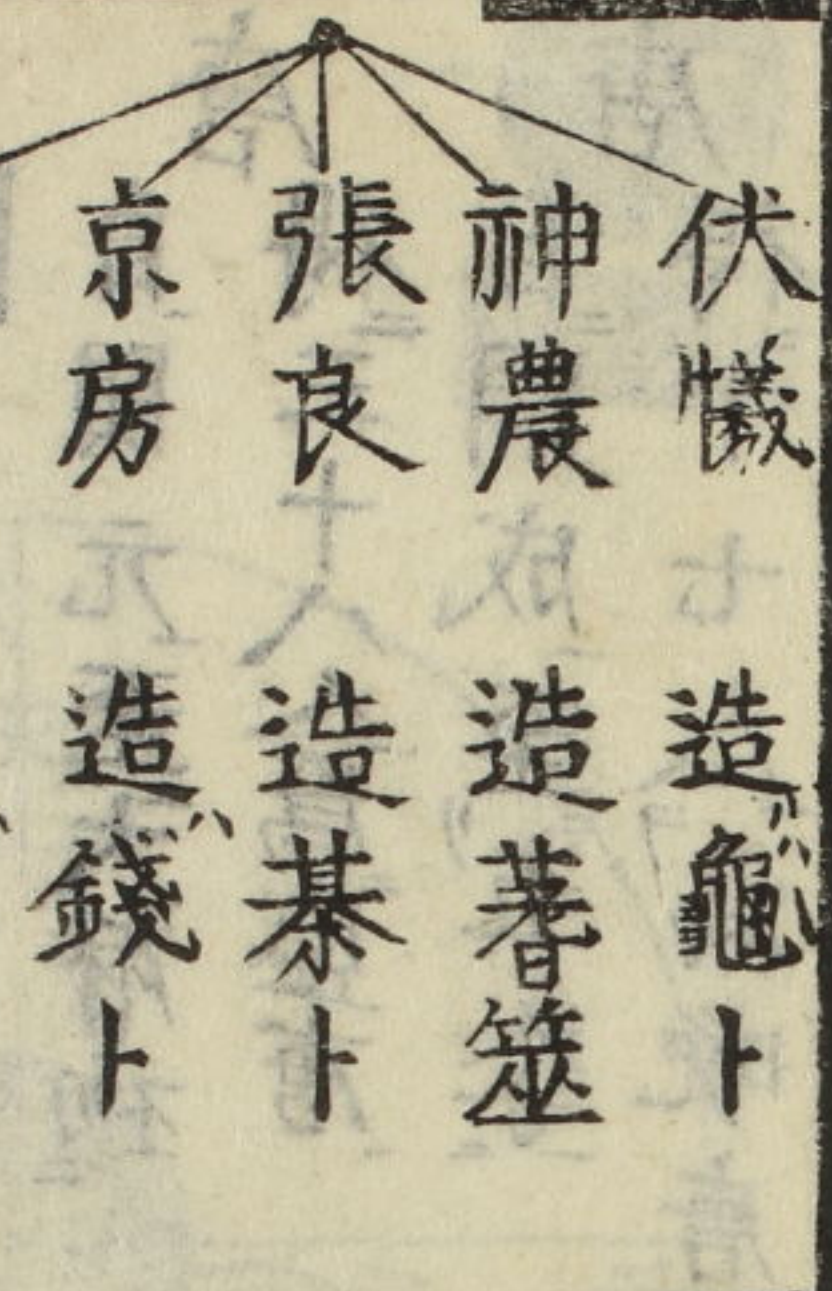 伏犧 造龜卜
神農 造蓍筮
張良 造棊卜
京房 造錢卜